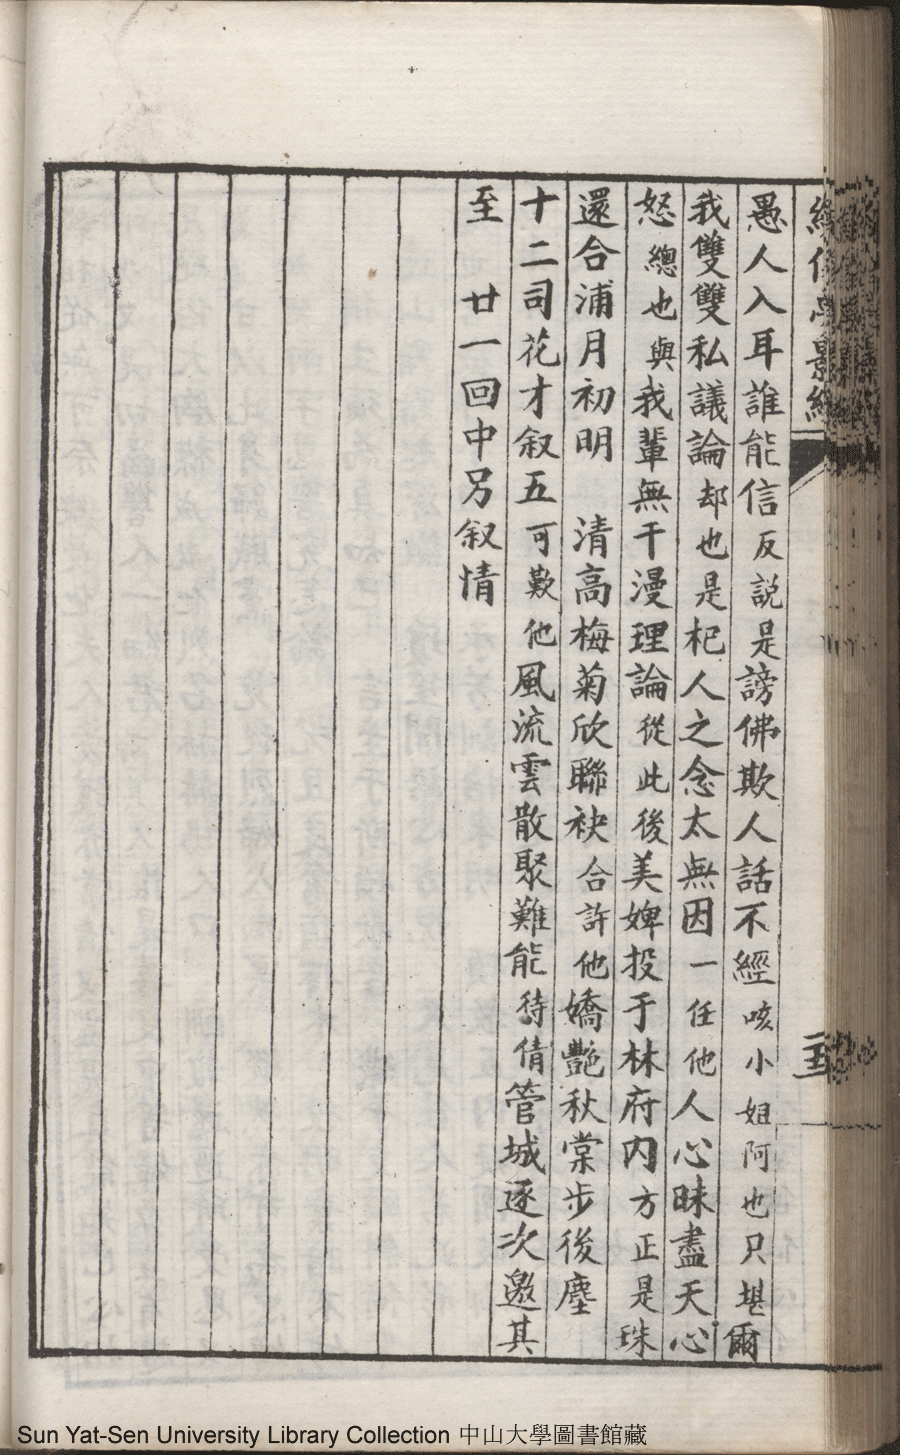 愚人入耳誰能信反説是謗佛欺人話不經咳小姐阿也只堪爾
我雙雙私議論却也是杞人之念太無因一任他人心昧盡天心
怒總也與我輩無干漫理論從此後美婢投于林府內方正是珠
還合浦月初明 清高梅菊欣聯袂合許他嬌艷秋棠步後塵
十二司花才叙五可歎他風流雲散聚難能待倩管城逐次邀其
至 廿一回中另叙情
Sun Yat-Sen University Library Collection 中山大學圖書館藏